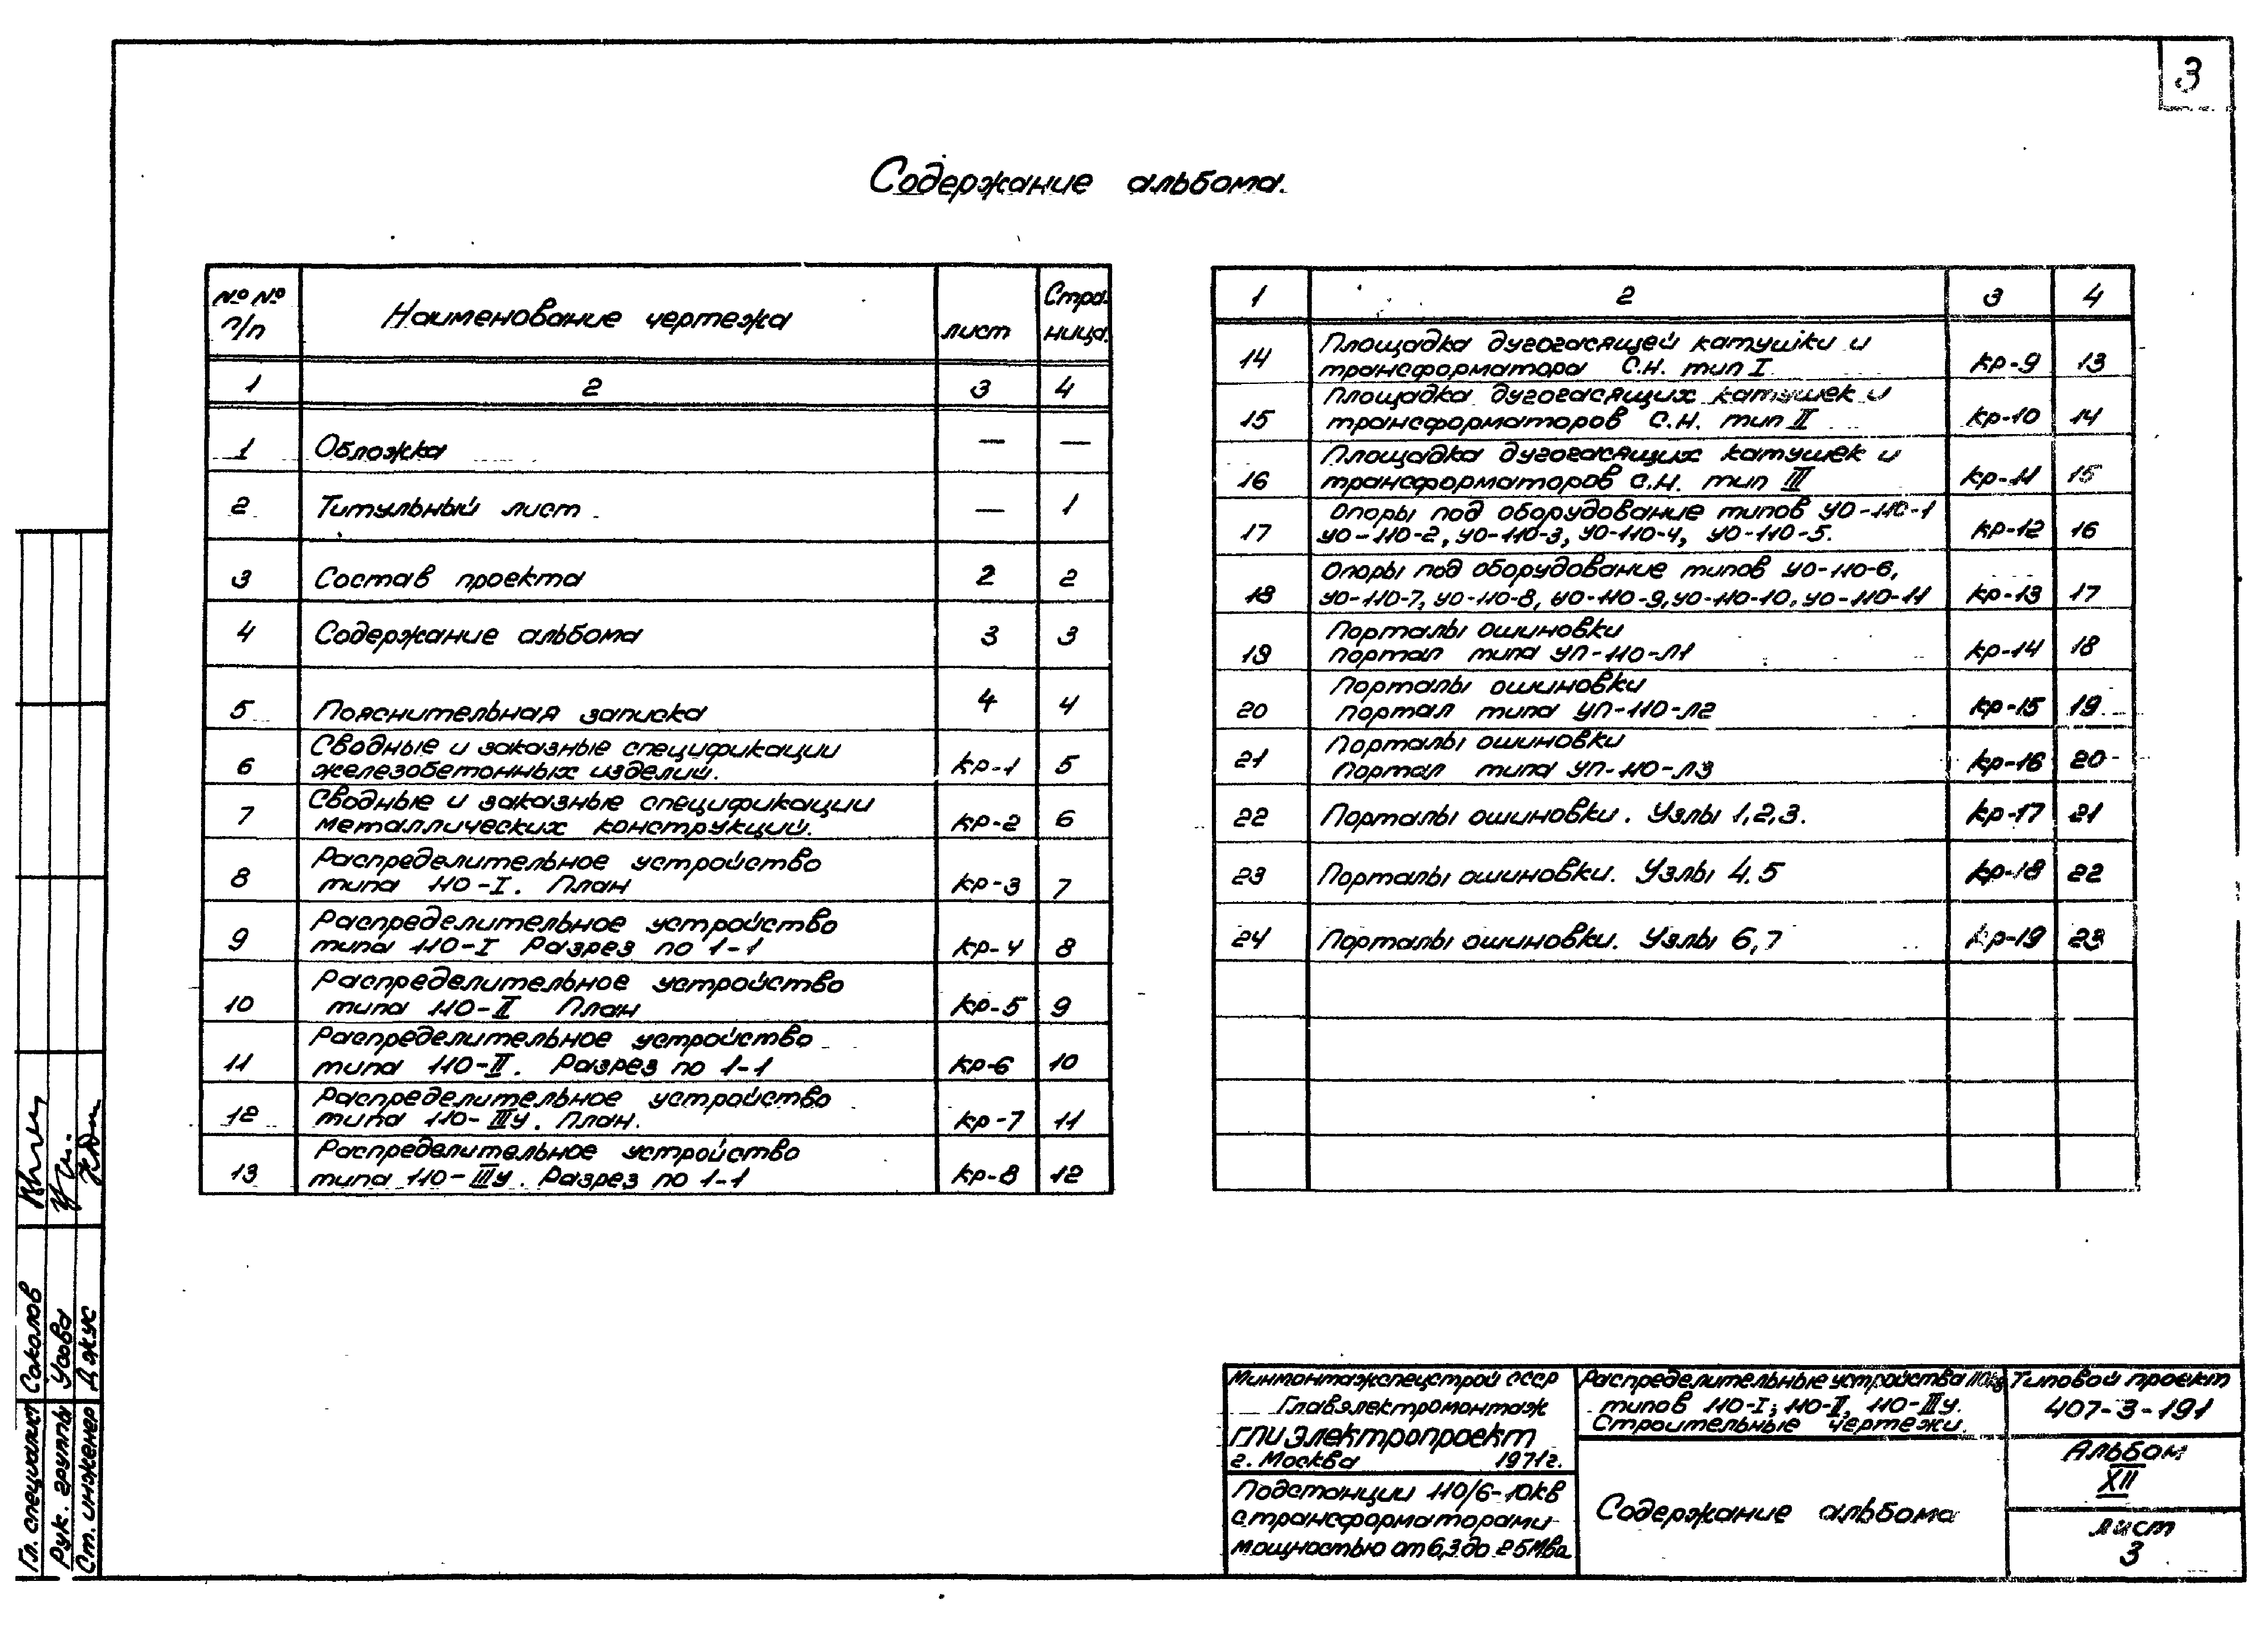 3
Содержание альбома.
№ № п/п Наименование чертежа лист Страница
1 2 3 4
1 Обложка — —
2 Титульный лист — 1
3 Состав проекта 2 2
4 Содержание альбома 3 3
5 Пояснительная записка 4 4
6 Сводные и заказные спецификации
железобетонных изделий. кр-1 5
7 Сводные и заказные спецификации
металлических конструкций. кр-2 6
8 Распределительное устройство
типа 110-I. План кр-3 7
9 Распределительное устройство
типа 110-I Разрез по 1-1 кр-4 8
10 Распределительное устройство
типа 110-II План кр-5 9
11 Распределительное устройство
типа 110-II. Разрез по 1-1 кр-6 10
12 Распределительное устройство
типа 110-IIIу. План. кр-7 11
13 Распределительное устройство
типа 110-IIIу. Разрез по 1-1 кр-8 12
1 2 3 4
14 Площадка дугогасящей катушки и
трансформатора С.Н. тип I кр-9 13
15 Площадка дугогасящих катушек и
трансформаторов С.Н. тип II кр-10 14
16 Площадка дугогасящих катушек и
трансформаторов С.Н. тип III кр-11 15
17 Опоры под оборудование типов УО-110-1
УО-110-2, УО-110-3, УО-110-4, УО-110-5. кр-12 16
18 Опоры под оборудование типов УО-110-6,
УО-110-7, УО-110-8, УО-110-9, УО-110-10, УО-110-11 кр-13 17
19 Порталы ошиновки
портал типа УП-110-Л1 кр-14 18
20 Порталы ошиновки
портал типа УП-110-Л2 кр-15 19
21 Порталы ошиновки
Портал типа УП-110-Л3 кр-16 20
22 Порталы ошиновки. Узлы 1,2,3. кр-17 21
23 Порталы ошиновки. Узлы 4.5 кр-18 22
24 Порталы ошиновки. Узлы 6,7 кр-19 23
Гл. специалист Соколов
Рук. группы Усова
Ст. инженер Джус
Минмонтажспецстрой СССР
Главэлектромонтаж
ГПИ Электропроект
г. Москва 1971г.
Подстанции 110/6-10кв
с трансформаторами
мощностью от 6,3 до 25 Мва
Распределительные устройства 110кв
типов 110-I; 110-II, 110-IIIу.
Строительные чертежи.
Содержание альбома
Типовой проект
407-3-191
Альбом
XII
лист
3